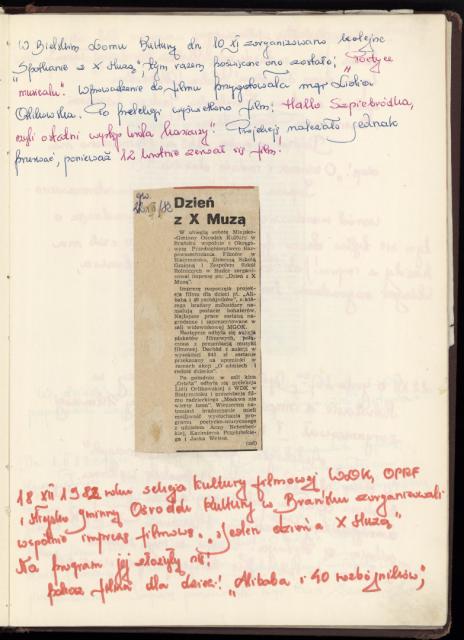 W Bielskim Domu Kultury dn 10 XI zorganizowano kolejne
"Spotkanie z X Muzą", tym razem poświęcone ono zostało: "Poetyce
musicalu". Wprowadzenie do filmu przygotowała mgr Lidia
Orlikowska. Po prelekcji wyświetlono film: "Hallo Szpicbródka,
czyli ostatni występ króla kasiarzy". Projekcję należało jednak
przerwać, ponieważ 12 krotnie zerwał się film!
Dzień
z X Muzą
W ubiegłą sobotę Miejsko-
-Gminny Ośrodek Kultury w
Brańsku wspólnie z Okręgo-
wym Przedsiębiorstwem Roz-
powszechniania Filmów w
Białymstoku, Zbiorczą Szkołą
Gminną i Zespołem Szkół
Rolniczych w Rudce zorgani-
zował imprezę pn. „Dzień z X
Muzą".
Imprezę rozpoczęła projek-
cja filmu dla dzieci pt. „Ali-
baba i 40 rozbójników", z któ-
rego brańscy milusińscy na-
malują postacie bohaterów.
Najlepsze prace zostaną na-
grodzone i zaprezentowane w
sali widowiskowej MGOK.
Następnie odbyła się aukcja
plakatów filmowych, połą-
czona z prezentacją muzyki
filmowej. Dochód z aukcji w
wysokości zł zostanie
przekazany na upominki w
ramach akcji „O uśmiech i
radość dziecka".
Po południu w sali kina
odbyła się prelekcja
Lidii Orlikowskiej z WDK w
Białymstoku i prezentacja fil-
mu radzieckiego „Moskwa nie
wierzy łzom". Wieczorem na-
tomiast brańszczanie mieli
możliwość wysłuchania pro-
gramu poetycko-muzycznego
z udziałem Anny
Kazimierza
go i Jacka
18 XII 1982 roku sekcja kultury filmowej WDK, OPRF
i Miejsko gminny Ośrodek Kultury w Brańsku zorganizowali
wspólnie imprezę filmową... "Jeden dzień z X Muzą"
Na program jej złożyły się:
pokaz filmu dla dzieci: "Alibaba i 40 rozbójników",